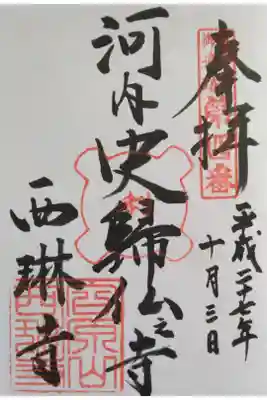 奉拝
第四番
平成二十七年
十月三日
河内史歸仏之寺
西琳寺